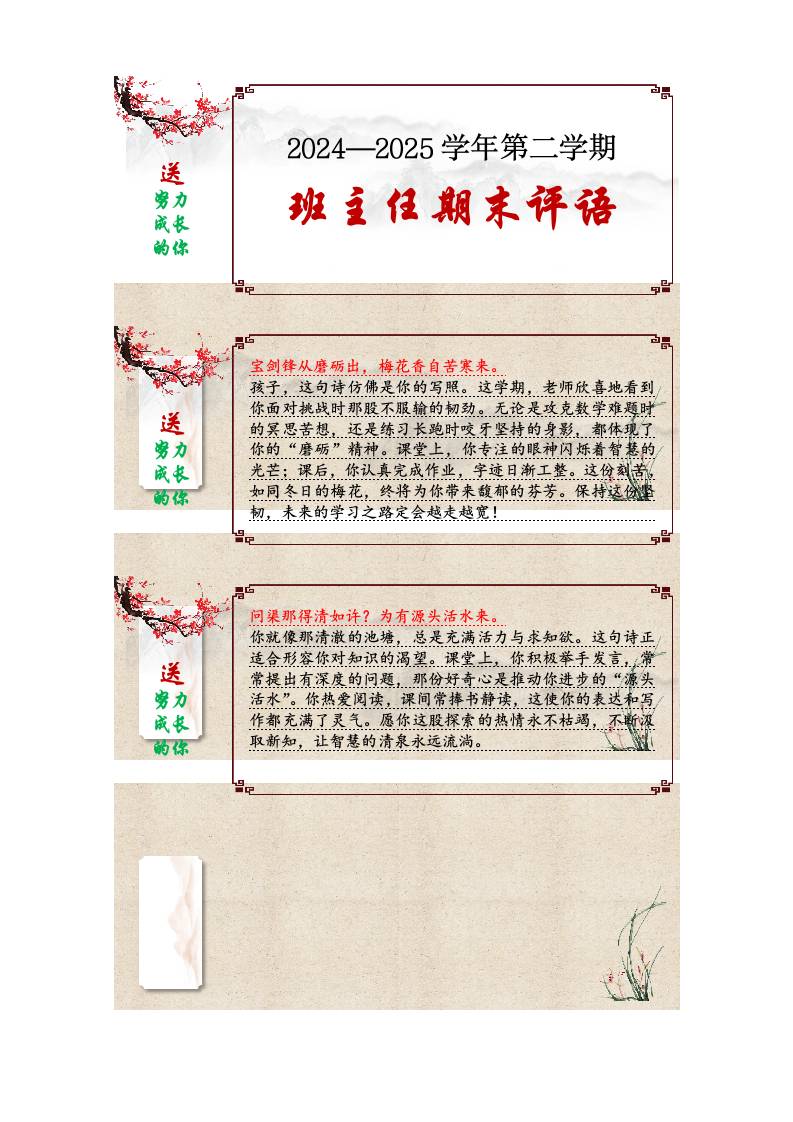 送
努力
成长
的你
2024—2025 学年第二学期
班主任期末评语
送
努力
成长
的你
宝剑锋从磨砺出，梅花香自苦寒来。
孩子，这句诗仿佛是你的写照。这学期，老师欣喜地看到
你面对挑战时那股不服输的韧劲。无论是攻克数学难题时
的冥思苦想，还是练习长跑时咬牙坚持的身影，都体现了
你的“磨砺”精神。课堂上，你专注的眼神闪烁着智慧的
光芒；课后，你认真完成作业，字迹日渐工整。这份刻苦，
如同冬日的梅花，终将为你带来馥郁的芬芳。保持这份坚
韧，未来的学习之路定会越走越宽！
送
努力
成长
的你
问渠那得清如许？为有源头活水来。
你就像那清澈的池塘，总是充满活力与求知欲。这句诗正
适合形容你对知识的渴望。课堂上，你积极举手发言，常
常提出有深度的问题，那份好奇心是推动你进步的“源头
活水”。你热爱阅读，课间常捧书静读，这使你的表达和写
作都充满了灵气。愿你这股探索的热情永不枯竭，不断汲
取新知，让智慧的清泉永远流淌。